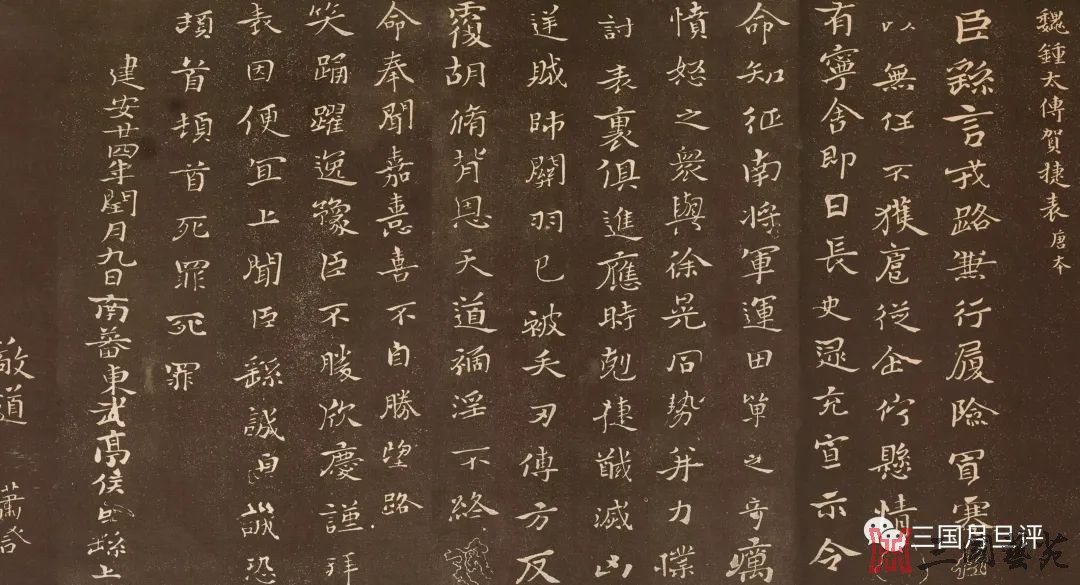 魏鍾太傅賀捷表 唐本
臣繇言戎路兼行履險冒寒
以無任不獲扈從企佇懸情
有寧舍即日長史逯充宣示令
命知征南將軍運田單之奇厲
憤怒之衆與徐晃同勢并力撲
討表裏俱進應時剋捷馘滅凶
逆賊帥關羽已被矢刃傅方反
覆胡脩背恩天道禍淫不終
命奉聞嘉憙喜不自勝望路
笑踊躍逸豫臣不勝欣慶謹拜
表因便宜上聞臣繇誠皇誠恐
頓首頓首死罪死罪
建安廿四年閏月九日南蕃東武亭侯臣繇上
三国月旦评
三國藝苑